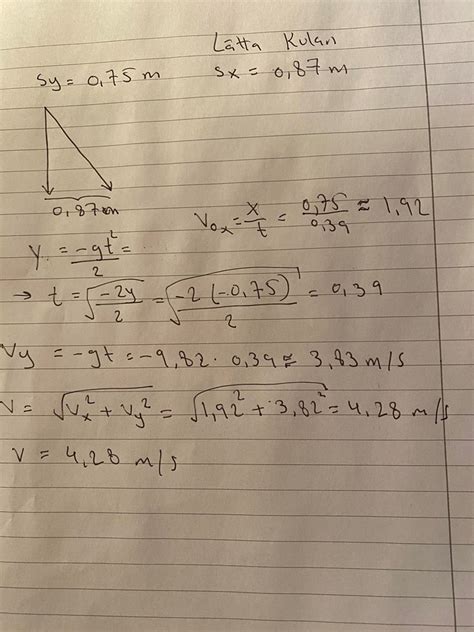 Lätta Kulan
Sy = 0,75 m Sx = 0,87 m
0,87 m
V₀ₓ = x/t = 0,75/0,39 ≈ 1,92
y = -gt²/2 =
→ t = √(-2y/2) = √(-2(-0,75)/2) = 0,39
Vy = -gt = -9,82 · 0,39 ≈ 3,83 m/s
V = √(Vx² + Vy²) = √(1,92² + 3,82²) = 4,28 m/s
V = 4,28 m/s